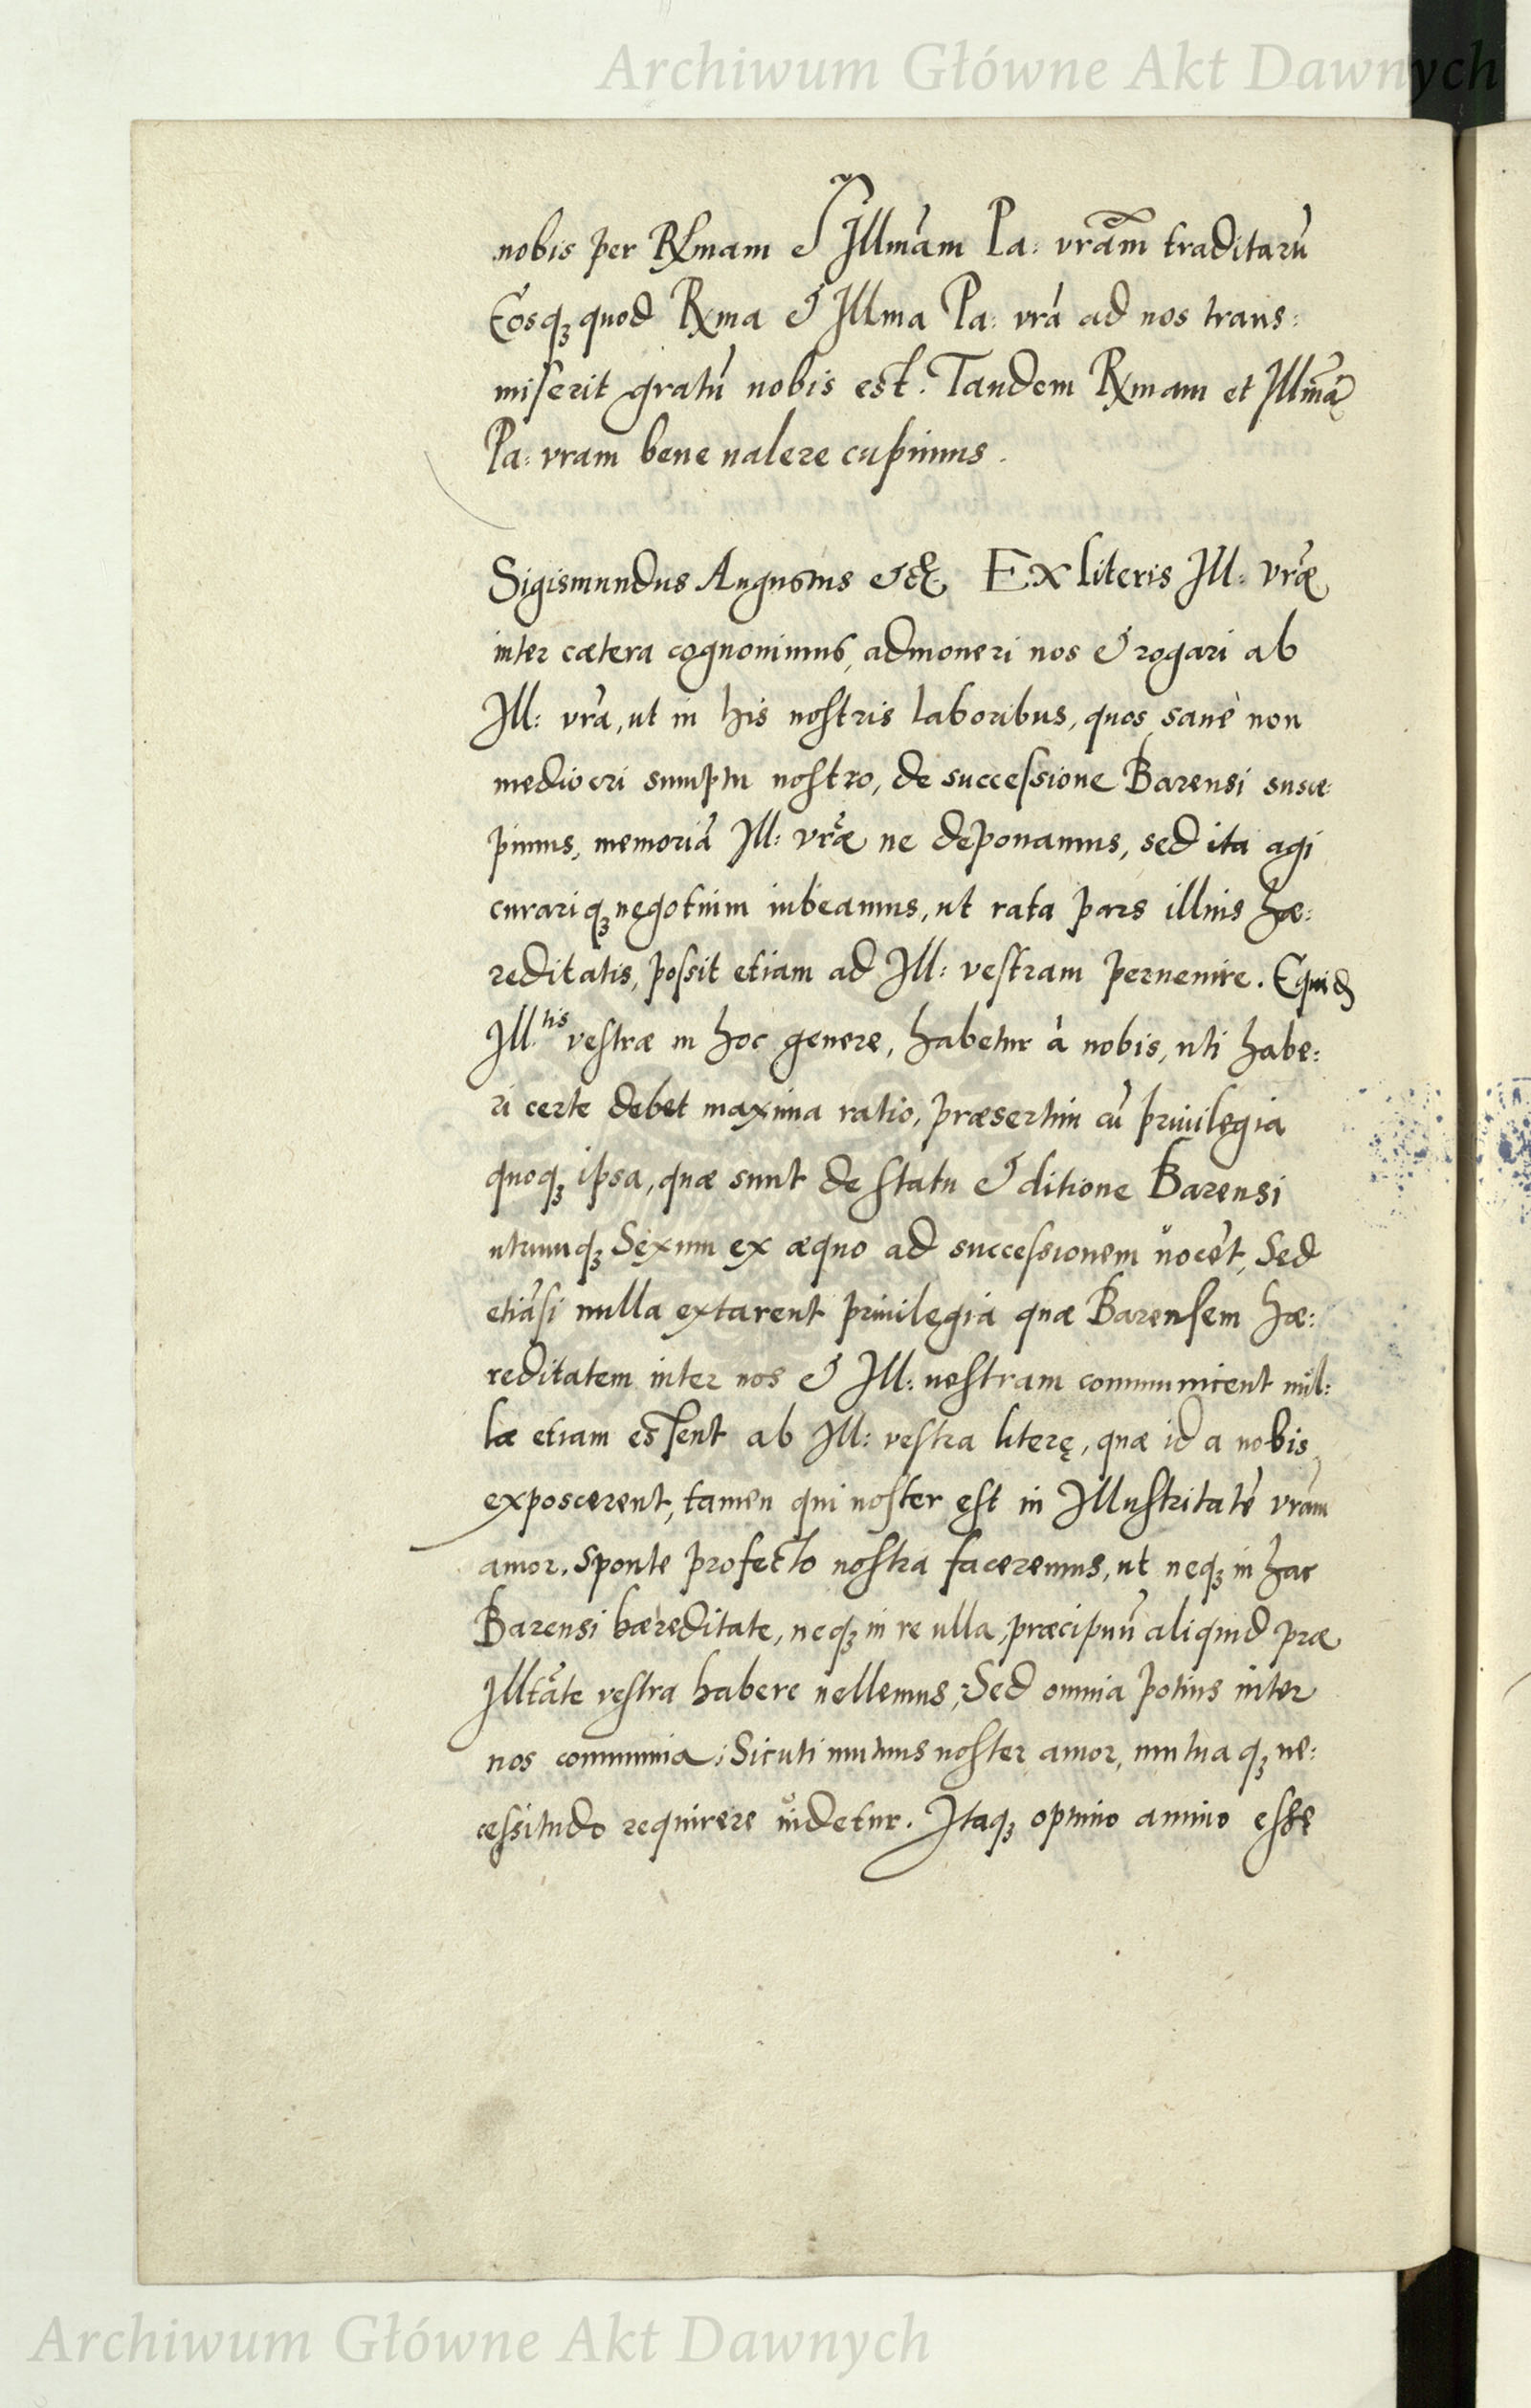 Archiwum Główne Akt Dawnych
nobis per Rxmam & Illmām Pa: vrām traditarū
Eosq; quod Rxma & Illma Pa: vrā ad nos trans:
miserit gratū nobis est. Tandem Rxmam et Illmā
Pa: vram bene ualere cupimus.
Sigismundus Augustus etc. Ex literis Ill: vræ
inter cætera cognouimus, admoneri nos & rogari ab
Ill: vrā, ut in his nostris laboribus, quos sanè non
mediocri sumptu nostro, de successione Barensi susce:
pimus, memoriā Ill: vræ ne deponamus, sed ita agi
curariq; negotium iubeamus, ut rata pars illius hæ:
reditatis, possit etiam ad Ill: vestram peruenire. Equid
Ill.tis vestræ in hoc genere, habetur à nobis, uti habe:
ri certe debet maxima ratio, præsertim cū priuilegia
quoq; ipsa, quæ sunt de statu & ditione Barensi
utrumq; Sexum ex æquo ad successionem uocēt, Sed
etiāsi nulla extarent priuilegia quæ Barensem hæ:
reditatem inter nos & Ill: uestram communicent nul:
læ etiam essent ab Ill: vestra literę, quæ id a nobis
exposcerent, tamen qui noster est in Illustritatē vrām
amor, sponte profecto nostra faceremus, ut neq; in hac
Barensi hæreditate, neq; in re ulla, præcipuū aliquid præ
Illtāte vestra habere uellemus, Sed omnia potius inter
nos communia; Sicuti mutuus noster amor, mutuaq; ne:
cessitudo requirere uidetur. Itaq; optimo animo esse
Archiwum Główne Akt Dawnych